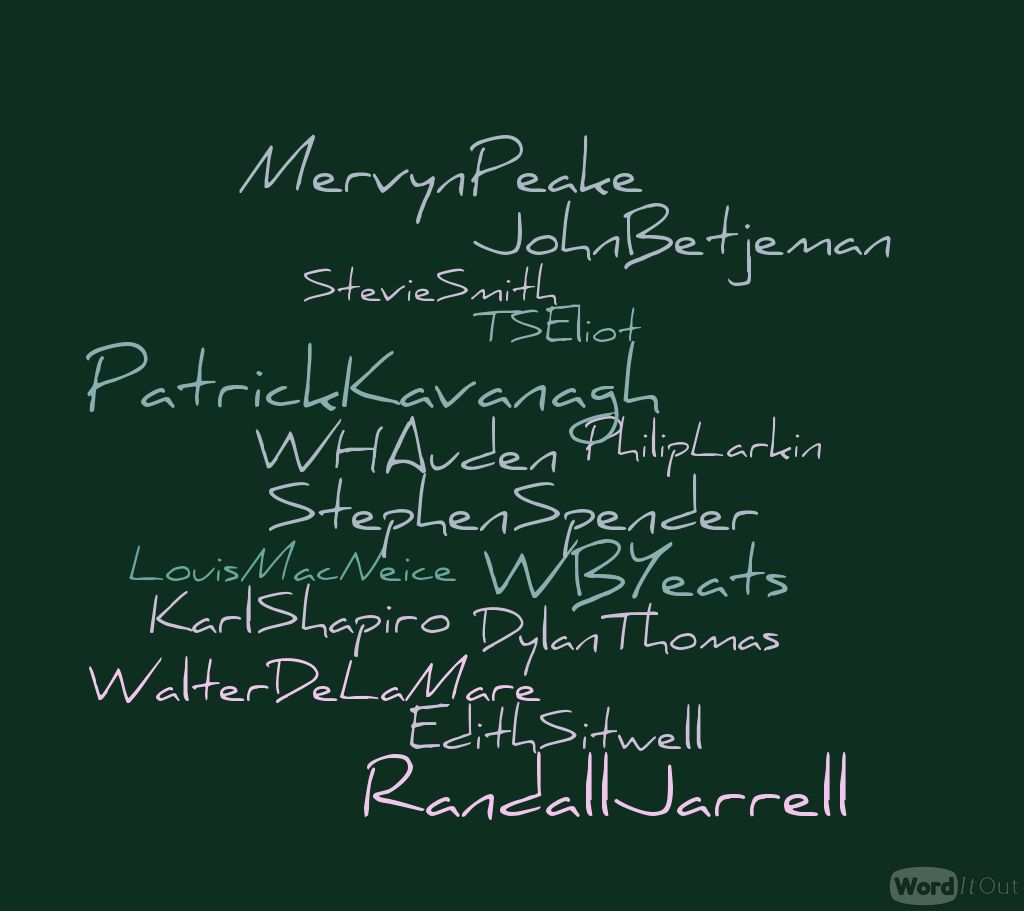 MervynPeake
JohnBetjeman
StevieSmith
TSEliot
PatrickKavanagh
WHAuden PhilipLarkin
StephenSpender
LouisMacNeice WBYeats
KarlShapiro DylanThomas
WalterDeLaMare
EdithSitwell
RandallJarrell
WordItOut